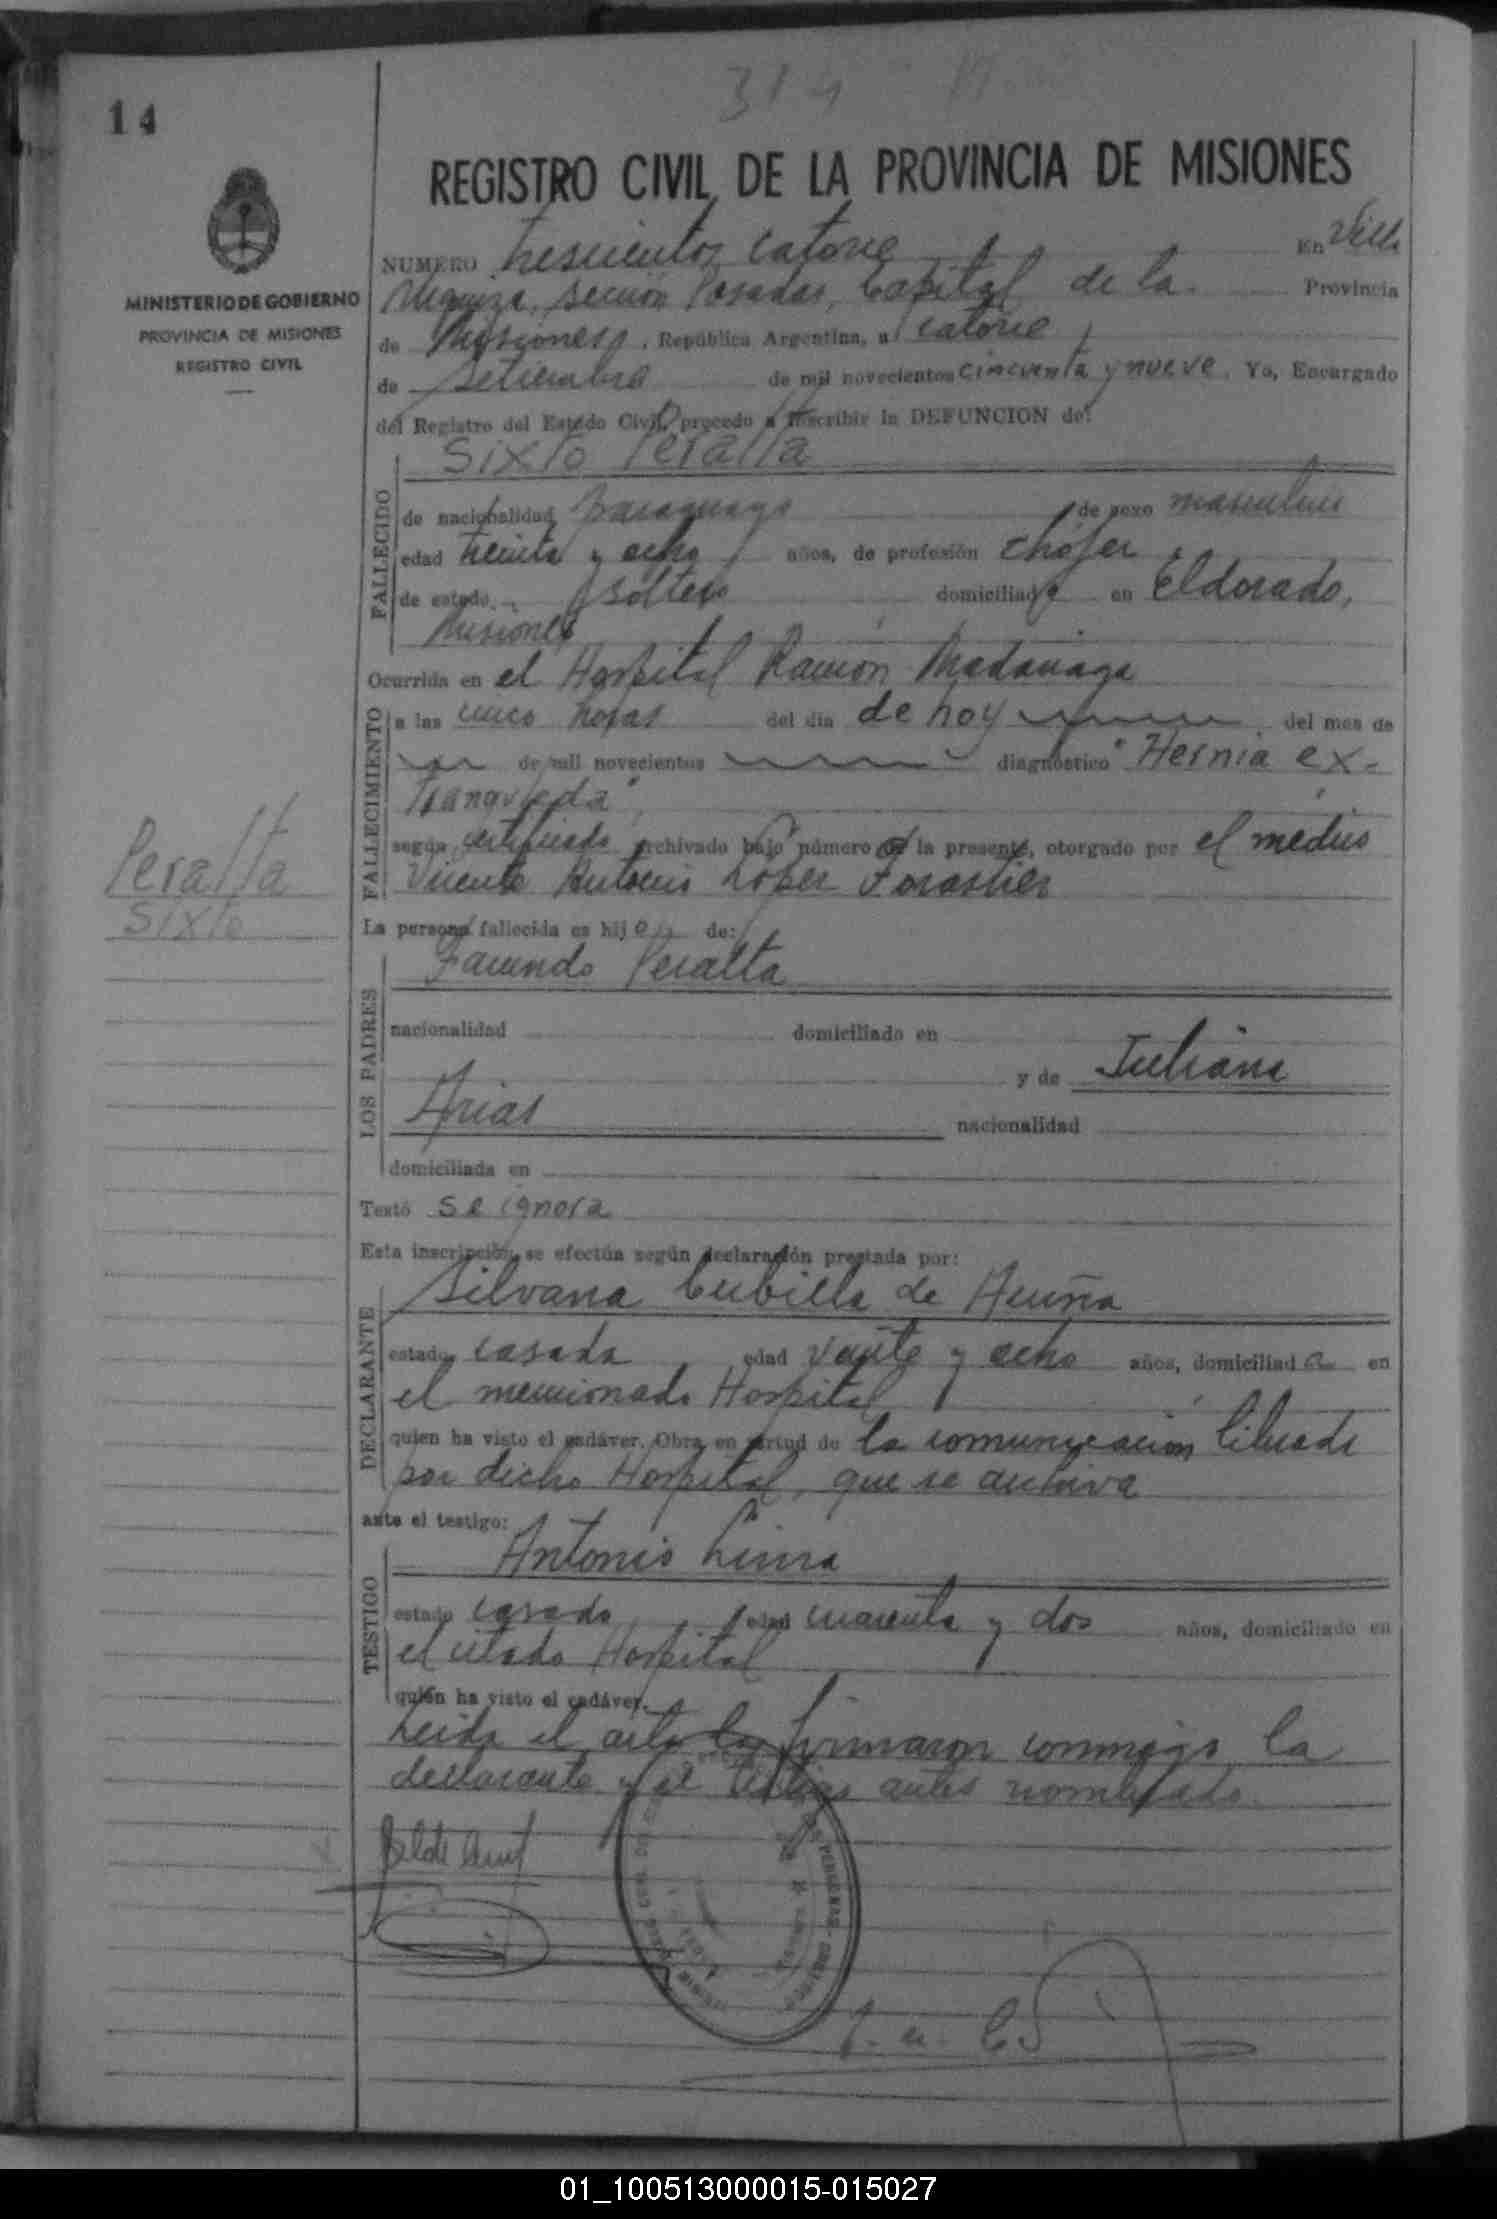 314
14
REGISTRO CIVIL DE LA PROVINCIA DE MISIONES
MINISTERIO DE GOBIERNO
PROVINCIA DE MISIONES
REGISTRO CIVIL
NUMERO trescientos catorce En Villa
Urquiza, sección Posadas, Capital de la Provincia
de Misiones, República Argentina, a catorce
de Setiembre de mil novecientos cincuenta y nueve. Yo, Encargado
del Registro del Estado Civil, procedo a inscribir la DEFUNCION de:
Sixto Peralta
FALLECIDO
de nacionalidad paraguayo de sexo masculino
edad treinta y ocho años, de profesión chófer
de estado soltero domiciliado en Eldorado,
Misiones
Ocurrida en el Hospital Ramón Madariaga
FALLECIMIENTO
a las cinco horas del día de hoy del mes de
de mil novecientos diagnóstico "Hernia ex-
trangulada"
según certificado archivado bajo número de la presente, otorgado por el médico
Vicente Antonio López Forastier
Peralta
Sixto
La persona fallecida es hijo de:
LOS PADRES
Facundo Peralta
nacionalidad domiciliado en
y de Juliana
Arias nacionalidad
domiciliada en
Testó se ignora
Esta inscripción, se efectúa según declaración prestada por:
DECLARANTE
Silvana Cubilla de Acuña
estado casada edad veinte y ocho años, domiciliada en
el mencionado Hospital
quien ha visto el cadáver. Obra en virtud de la comunicación librada
por dicho Hospital, que se archiva
ante el testigo:
TESTIGO
Antonio Lima
estado casado edad cuarenta y dos años, domiciliado en
el citado Hospital
quién ha visto el cadáver.
Leida el acta la firmaron conmigo la
declarante y el testigo antes nombrado.
01_100513000015-015027